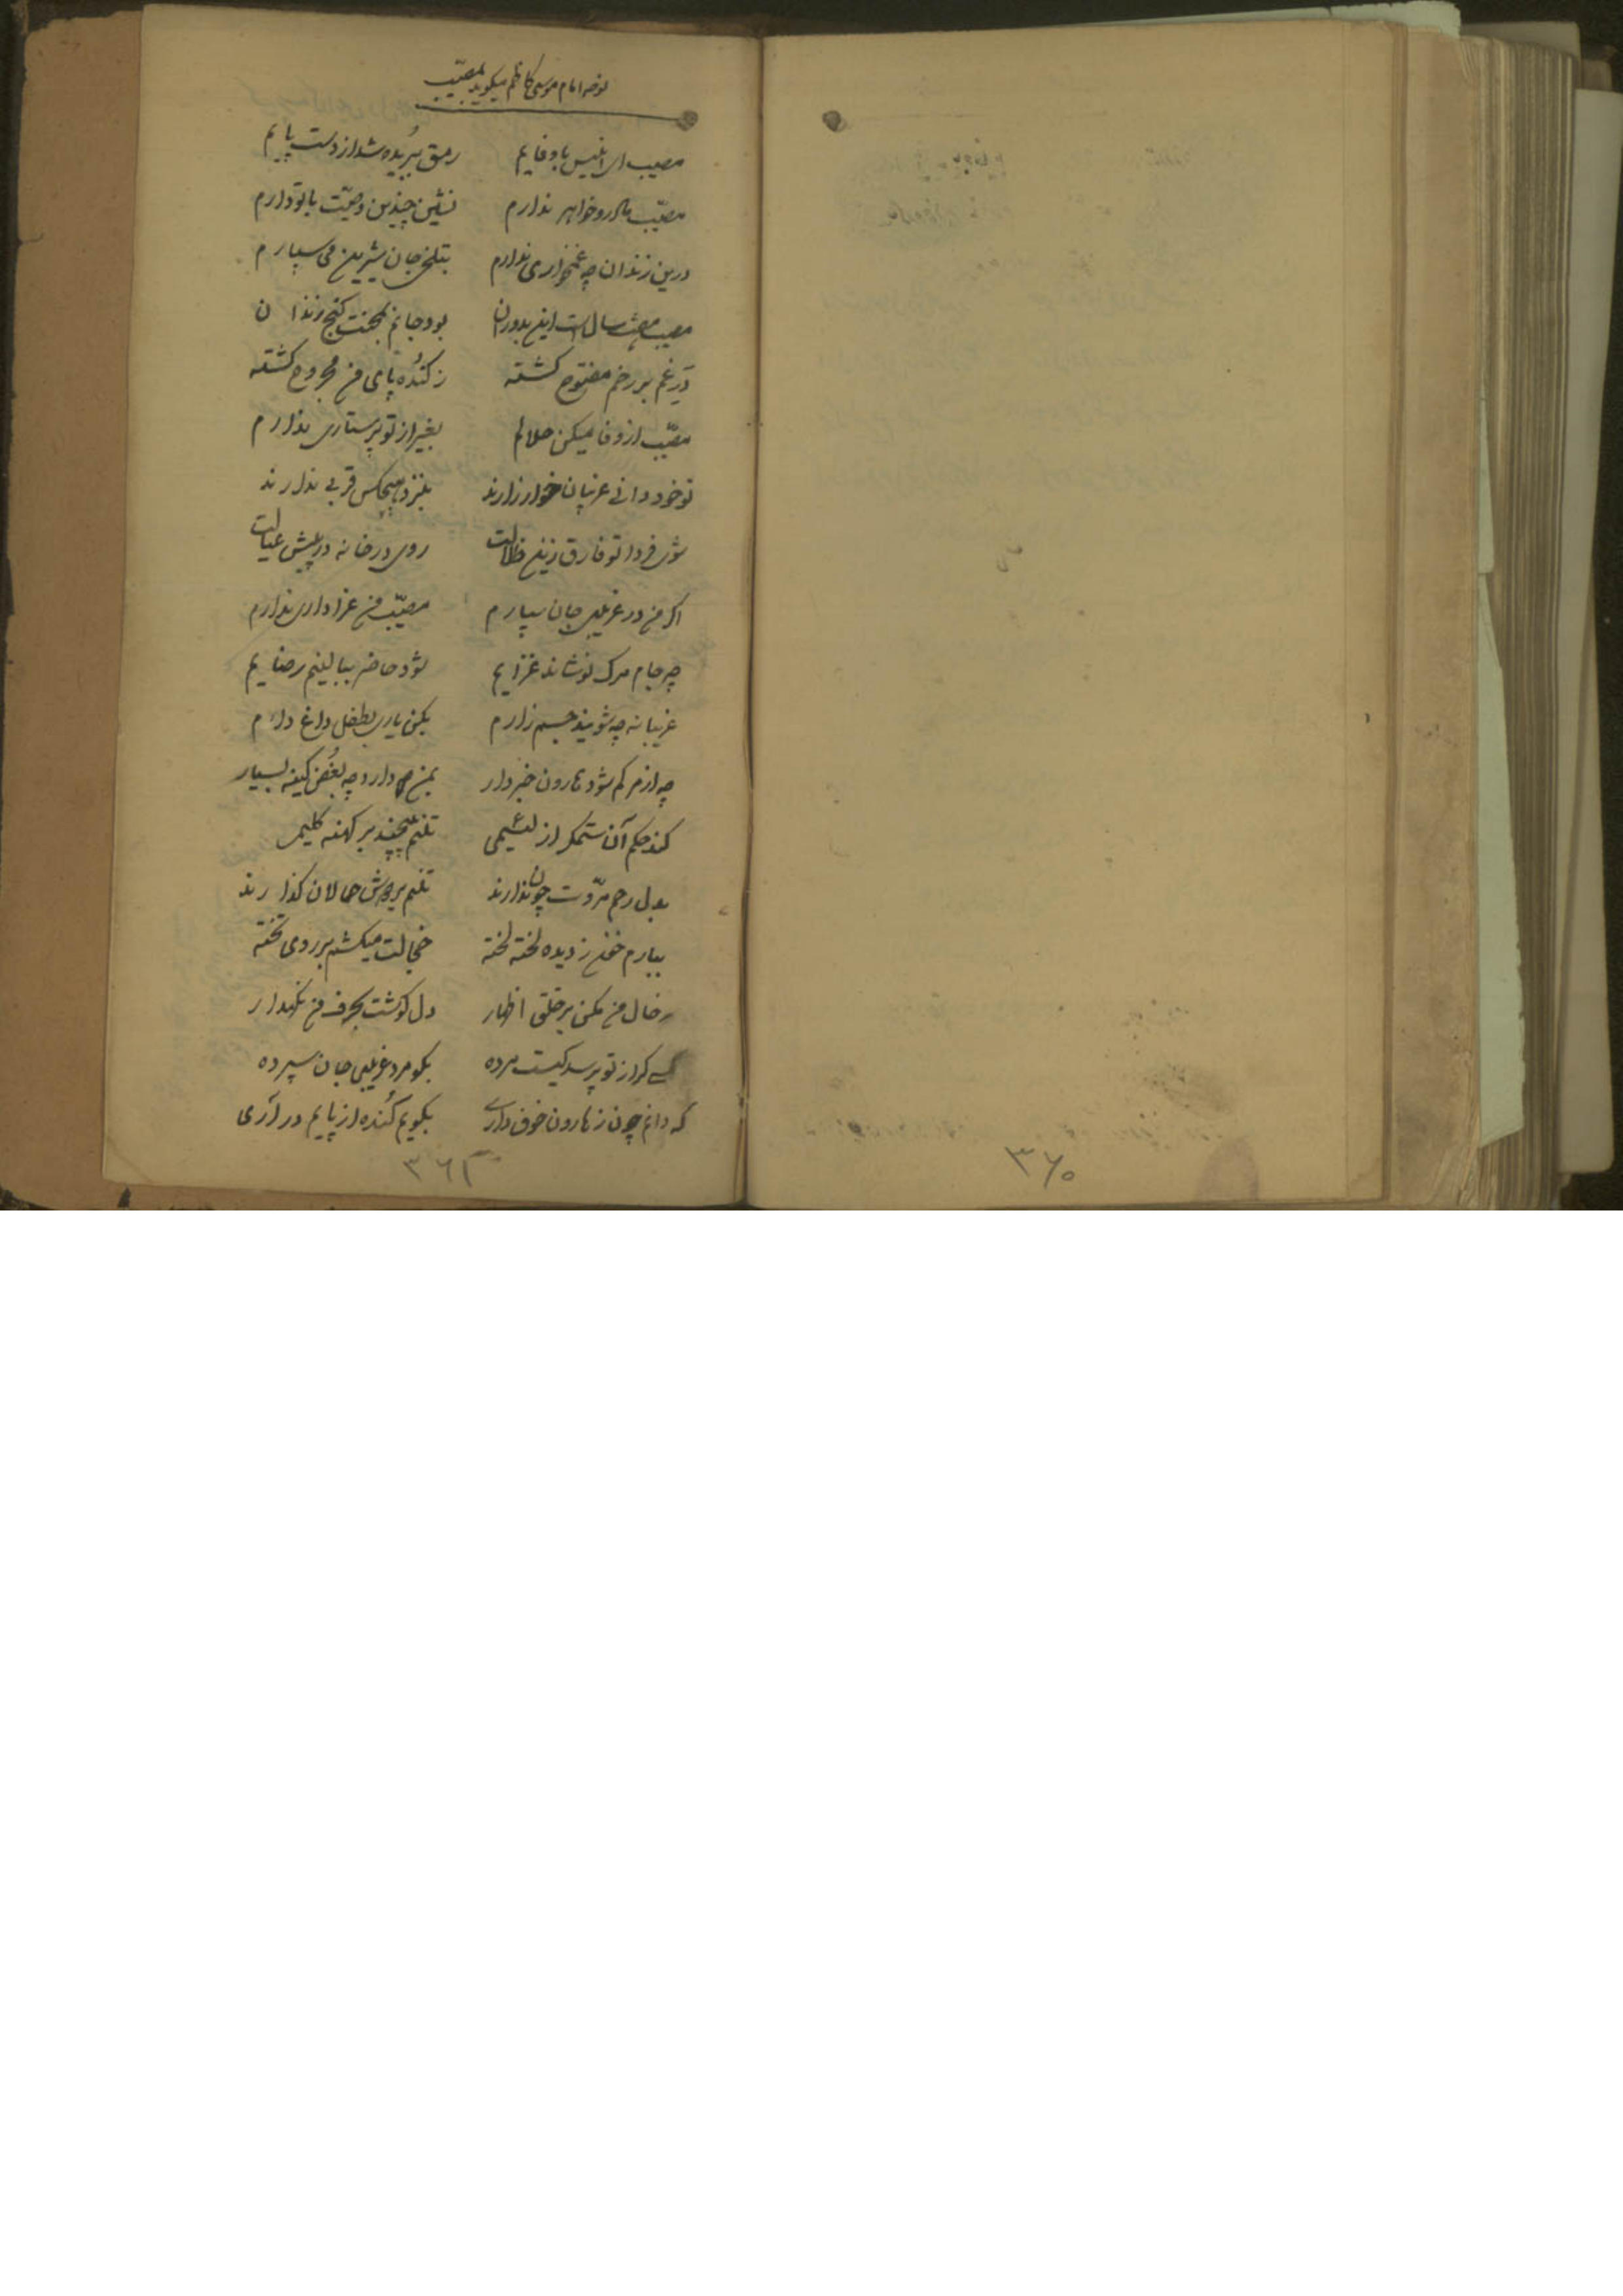 نوحه امام موسی کاظم میکوید بمصیّب
مصیب ای انیس با وفایم رمق ببریده شد از دست پایم
مصیّب مادر و خواهر ندارم نشین چندین وصیّت با تو دارم
درین زندان چه غمخواری ندارم بتلخی جان شیرین می سپارم
مصیب هشت سال است این بدوران بود جایم بمحنت کنج زندان
در غم بر رخم مفتوح کشته ز کُنده پای من مجروح کشته
مصیّب از وفا میکن حلالم بغیر از تو پرستاری ندارم
تو خود دانی غریبان خوار زارند بنزد هیچکس قربی ندارند
شوی فردا تو فارق زین روی در خانه در پیش عیالت
اکر من در غریبی جان سپارم مصیّب من عزاداری ندارم
چه جام مرک نوشاند شود حاضر ببالینم رضایم
غریبانه چه شویند جسم زارم بکن یاری بطفل داغ دارم
چه از مرکم شود هارون خبردار بمن دارد چه بُغض کینه بسیار
کند حکم آن ستمکر از لئیمی تنم پیچند بر کهنه کلیمی
بدل رحم مرّوت چون ندارند تنم بر دوش حمالان کذارند
ببارم خون ز دیده لخته لخته خجالت میکشم بر روی تخته
ز حال من مکن بر خلق اظهار دل کوشت بحرف من نکهدار
کسی کر از تو پرسد کیست مرده بکو مرد غریبی جان سپرده
که دانم چون ز هارون خوف داری بکویم کُنده از پایم در آری
۳۶۱
۳۶۰